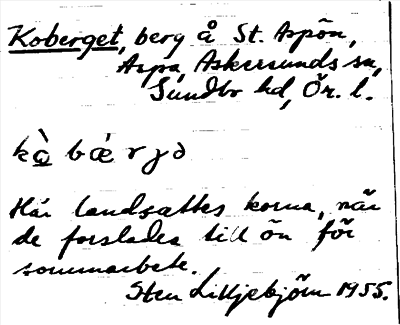 Koberget, berg å St. Aspön,
Aspa, Askersunds sn,
Sundbo hd, Ör. l.
kὰ bǽrgə
Här landsattes korna, när
de forslades till ön för
sommarbete.
Sten Lilljebjörn 1955.